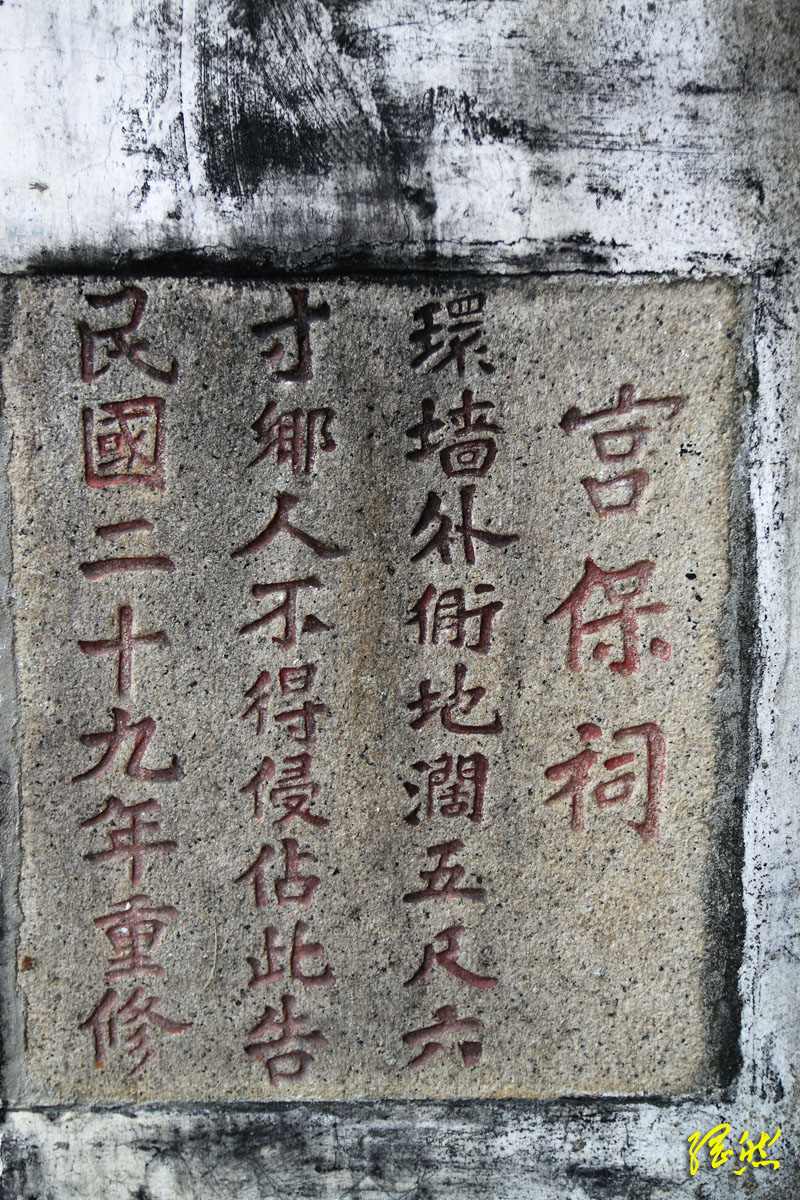 宮保祠
環墙外衕地濶五尺六
寸鄉人不得侵佔此告
民國二十九年重修